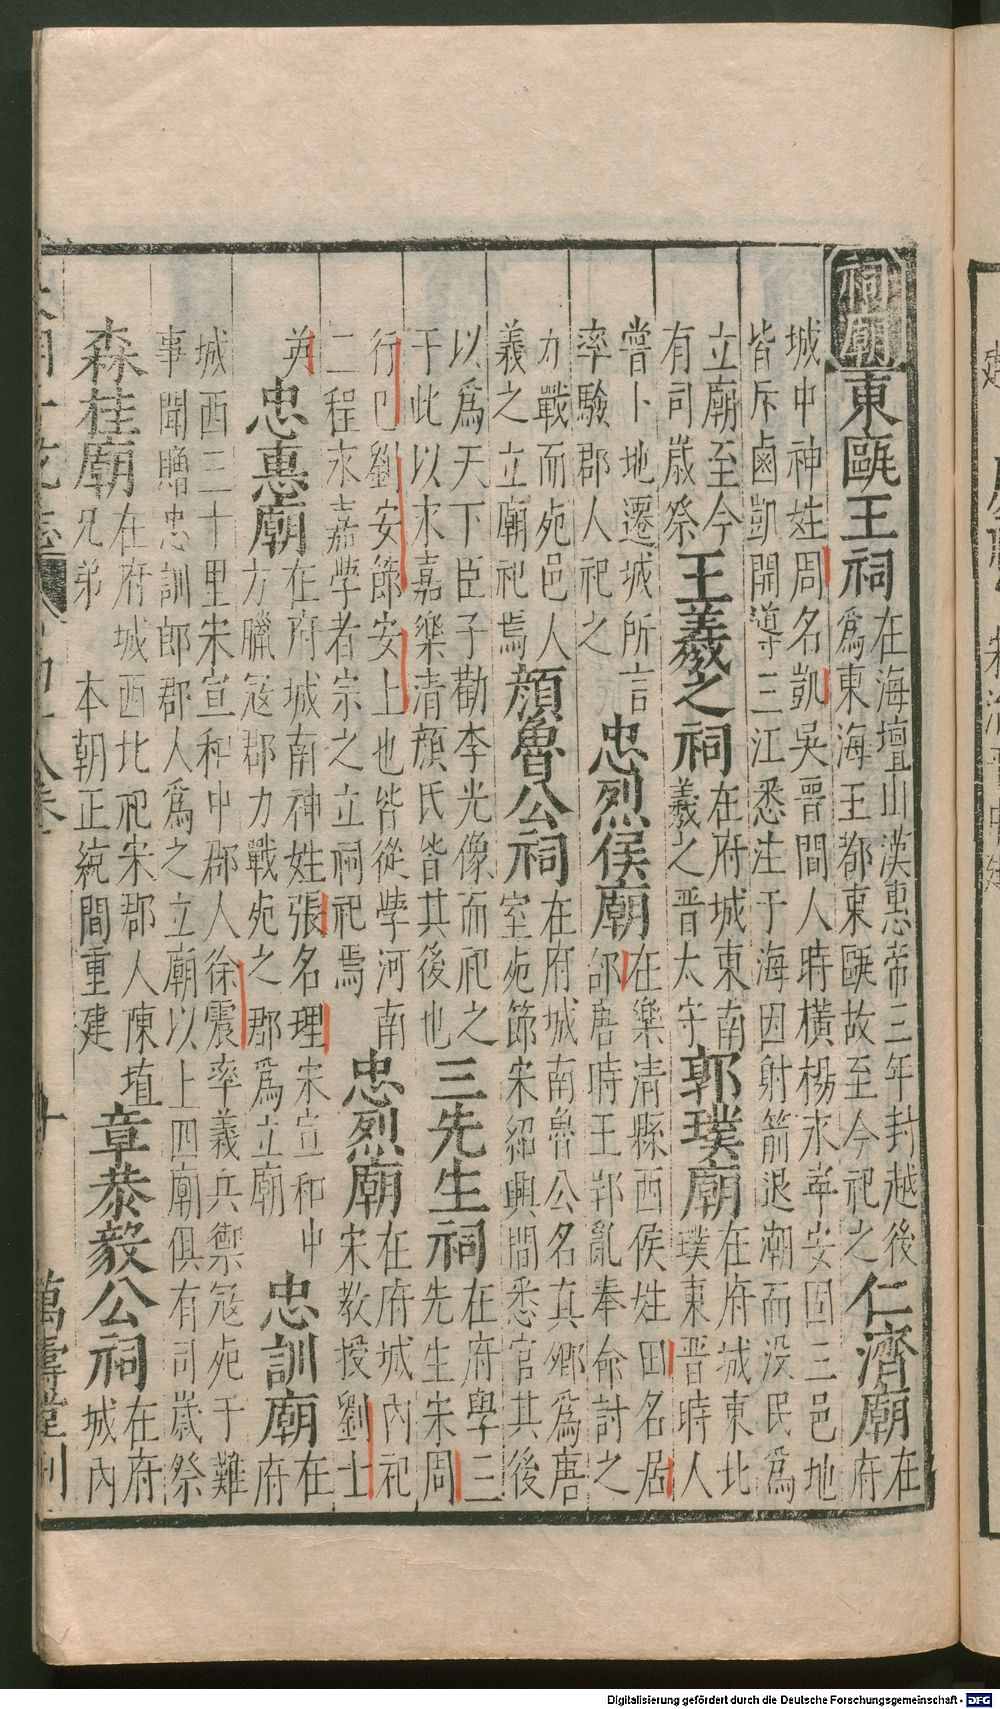 祠廟 東甌王祠 在海壇山漢惠帝三年封越後
為東海王都東甌故至今祀之 仁濟廟 在
府
城中神姓周名凱吳晉間人時橫楊永寧安固三邑地
皆斥鹵凱開導三江悉注于海因射箭退潮而没民為
立廟至今
有司嵗祭 王羲之祠 在府城東南
羲之晉太守 郭璞廟 在府城東北
璞東晉時人
嘗卜地遷城所言
率驗郡人祀之 忠烈侯廟 在樂清縣西侯姓田名居
邰唐時王郢亂奉命討之
力戰而死邑人
義之立廟祀焉 顔魯公祠 在府城南魯公名真卿為唐
室死節宋紹興間悉官其後
以為天下臣子勸李光像而祀之
于此以永嘉樂清顔氏皆其後也 三先生祠 在府學三
先生宋周
行巳劉安節安上也皆從學河南
二程永嘉學者宗之立祠祀焉 忠烈廟 在府城内祀
宋教授劉士
英 忠惠廟 在府城南神姓張名理宋宣和中
方臘冦郡力戰死之郡為立廟 忠訓廟 在
府
城西三十里宋宣和中郡人徐震率義兵禦冦死于難
事聞贈忠訓郎郡人為之立廟以上四廟俱有司嵗祭
森桂廟 在府城西北祀宋郡人陳埴
兄弟 本朝正統間重建 章恭毅公祠 在府
城内
十 萬壽堂刊
Digitalisierung gefördert durch die Deutsche Forschungsgemeinschaft - DFG